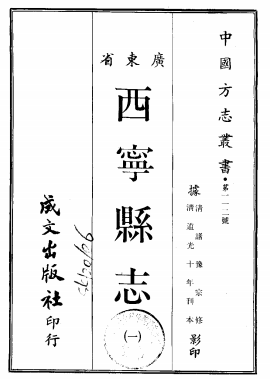 中國方志叢書·第一一二號
據清諸豫宗修
清道光十年刊本影印
廣東省
西寧縣志
(一)
成文出版社印行